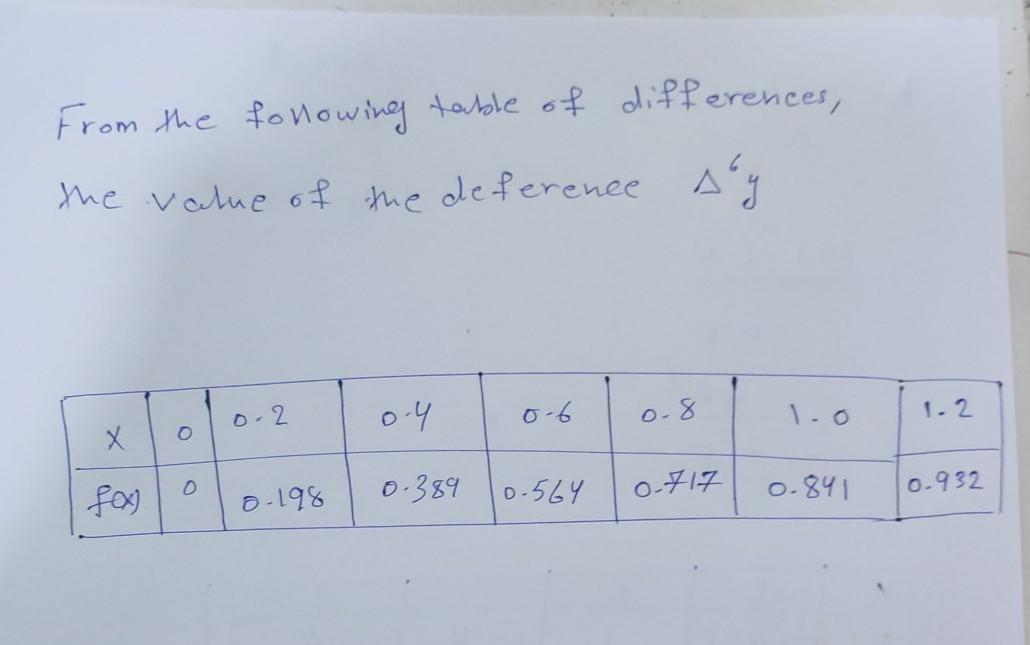 From the following table of differences,
the value of the deference Δ⁶y
X 0 0.2 0.4 0.6 0.8 1.0 1.2
f(x) 0 0.198 0.389 0.564 0.717 0.841 0.932